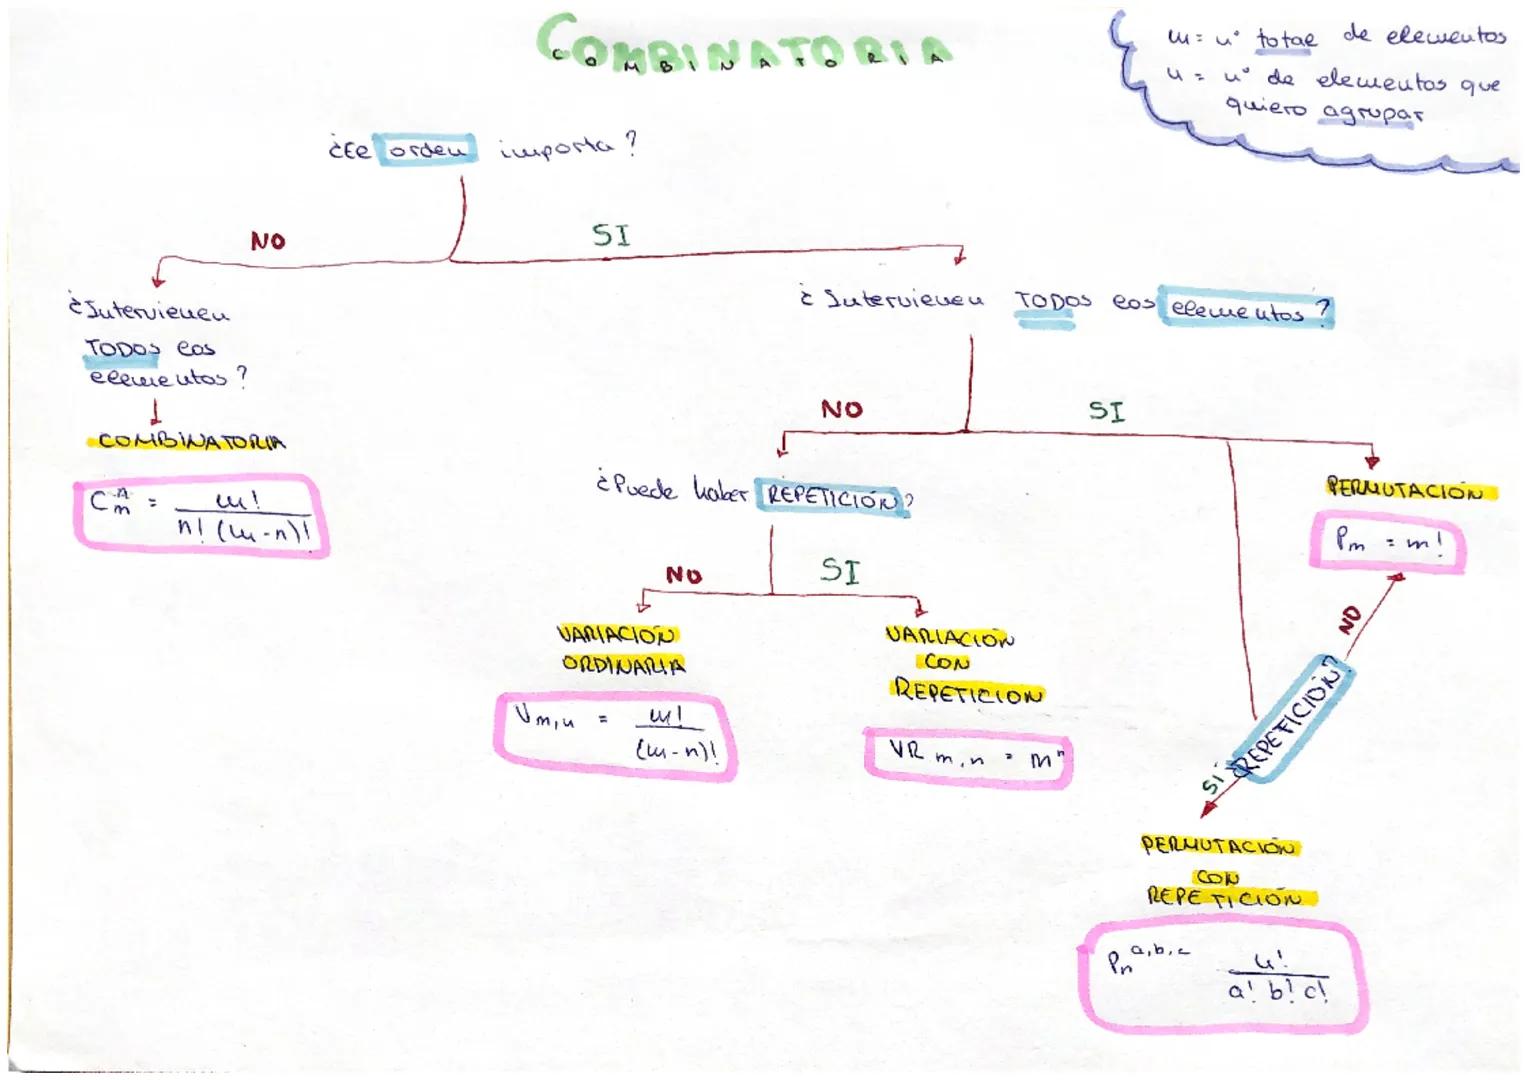 COMBINATORIA
m = nº total de elementos
n = nº de elementos que
quiero agrupar
¿El orden importa?
NO
SI
¿Intervienen
TODOS los
elementos?
COMBINATORIA
C_m^n = m! / n! (m-n)!
¿Intervienen TODOS los elementos?
NO
SI
¿Puede haber REPETICIÓN?
NO
SI
VARIACIÓN
ORDINARIA
V m,n = m! / (m-n)!
VARIACIÓN
CON
REPETICION
VR m,n = m^n
PERMUTACIÓN
Pm = m!
NO
¿REPETICIÓN?
SI
PERMUTACIÓN
CON
REPETICIÓN
Pn^a,b,c n! / a! b! c!